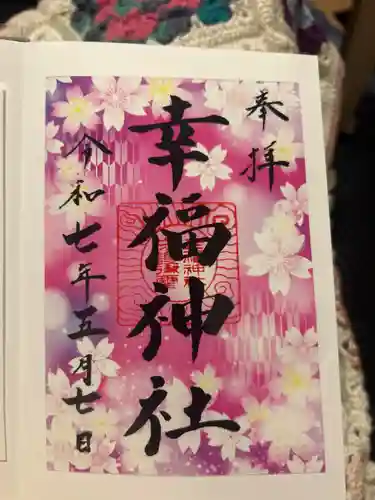 奉拝
幸福神社
令和七年五月七日